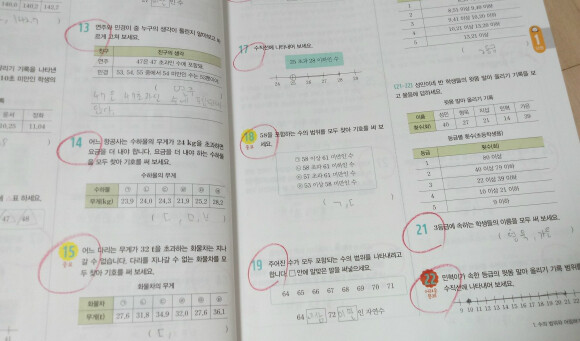 140.0 140.2 143.2
13 연주와 민경이 중 누구의 생각이 틀린지 알아보고
르게 고쳐 보세요.
친구 친구의 생각
연주 47은 47 초과인 수에 포함돼.
민경 53, 54, 55 중에서 54 미만인 수는 53뿐이야.
14 어느 항공사는 수하물의 무게가 24 kg을 초과하면
요금을 더 내야 합니다. 요금을 더 내야 하는 수하물
을 모두 찾아 기호를 써 보세요.
수하물의 무게
수하물 ㉠ ㉡ ㉢ ㉣ ㉤ ㉥
무게(kg) 23,9 24,0 24,3 21,9 25,2 28,2
15 어느 다리는 무게가 32 t을 초과하는 화물차는 지나
갈 수 없습니다. 다리를 지나갈 수 없는 화물차를 모
두 찾아 기호를 써 보세요.
화물차의 무게
화물차 ㉠ ㉡ ㉢ ㉣ ㉤ ㉥
무게(t) 27,6 31,8 34,9 32,0 27,6 36,1
17 수직선에 나타내어 보세요.
25 초과 28 이하인 수
18 58을 포함하는 수의 범위를 모두 찾아 기호를 써 보
세요.
㉠ 58 이상 61 미만인 수
㉡ 58 초과 61 이하인 수
㉢ 57 초과 61 미만인 수
㉣ 53 이상 58 미만인 수
19 주어진 수가 모두 포함되는 수의 범위를 나타내려고
합니다. □ 안에 알맞은 말을 써넣으세요.
64 65 66 67 68 69 70 71
64 이상 72 미만 인 자연수
[21~22] 성민이네 반 학생들의 윗몸 말아 올리기 기록을 보
고 물음에 답하세요.
윗몸 말아 올리기 기록
이름 성민 행복 미섭 민혁 가은
횟수(회) 45 37 21 14 29
등급별 횟수(초등학생용)
등급 횟수(회)
1 80 이상
2 40 이상 79 이하
3 22 이상 39 이하
4 10 이상 21 이하
5 9 이하
21 3등급에 속하는 학생들의 이름을 모두 써 보세요.
22 민혁이가 속한 등급의 윗몸 말아 올리기 기록 범위를
수직선에 나타내어 보세요.
9 10 11 12 13 14 15 16 17 18 19 20 21 22